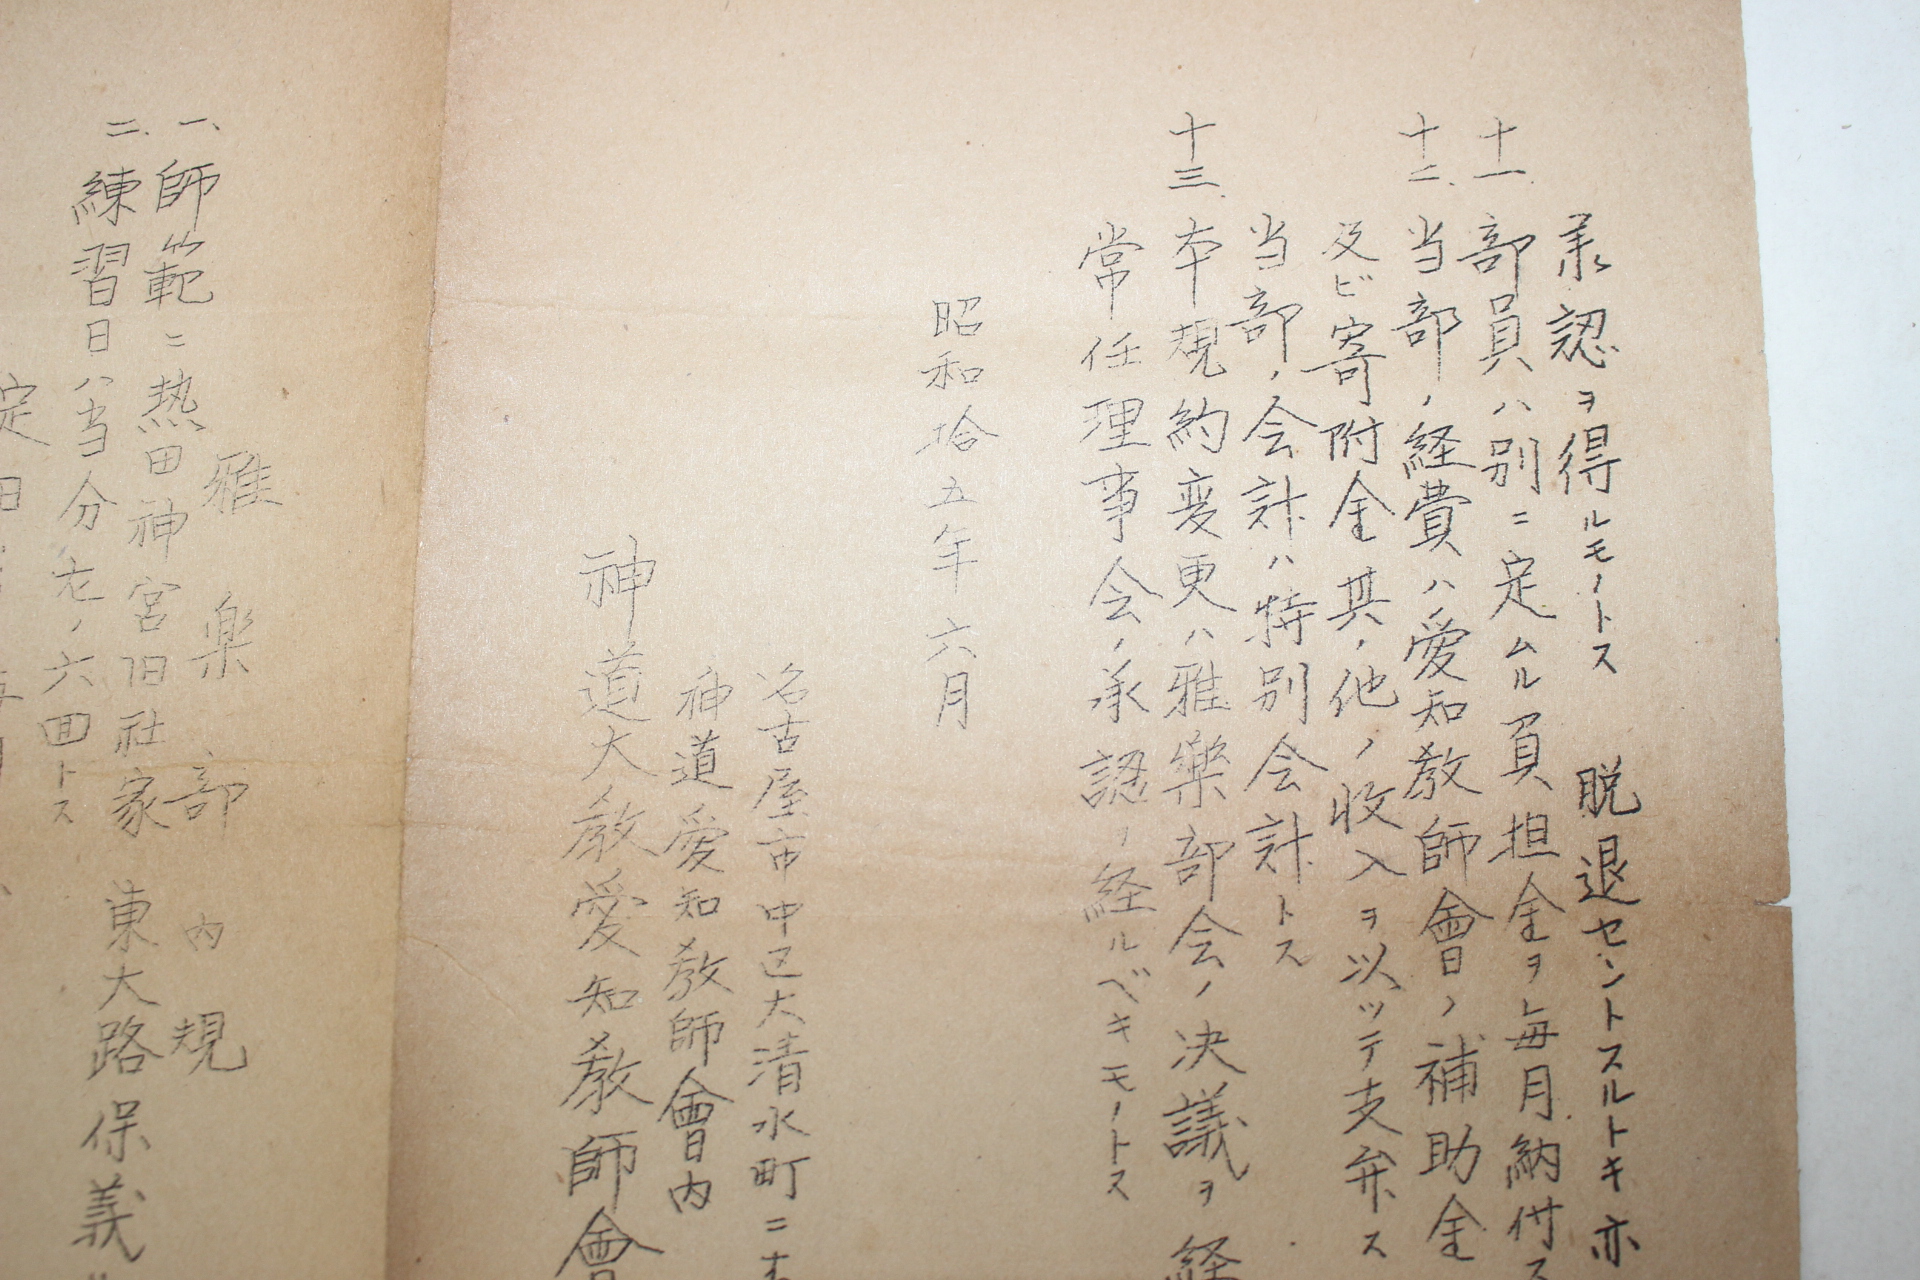 承認ヲ得ルモノトス　脱退セントスルトキ亦
十一　部員ハ別ニ定ムル負担金ヲ毎月納付ス
十二、当部ノ経費ハ愛知教師會ノ補助金
及ビ寄附金其ノ他ノ收入ヲ以ッテ支弁ス
当部ノ会計ハ特別会計トス
十三、本規約変更ハ雅樂部会ノ決議ヲ経
常任理事会ノ承認ヲ経ルベキモノトス
昭和拾五年六月
名古屋市中区大清水町二
神道愛知教師會内
神道大教愛知教師會
雅楽部内規
一、師範ニ热田神宮旧社家　東大路保義
二、練習日ハ当分左ノ六回トス
定